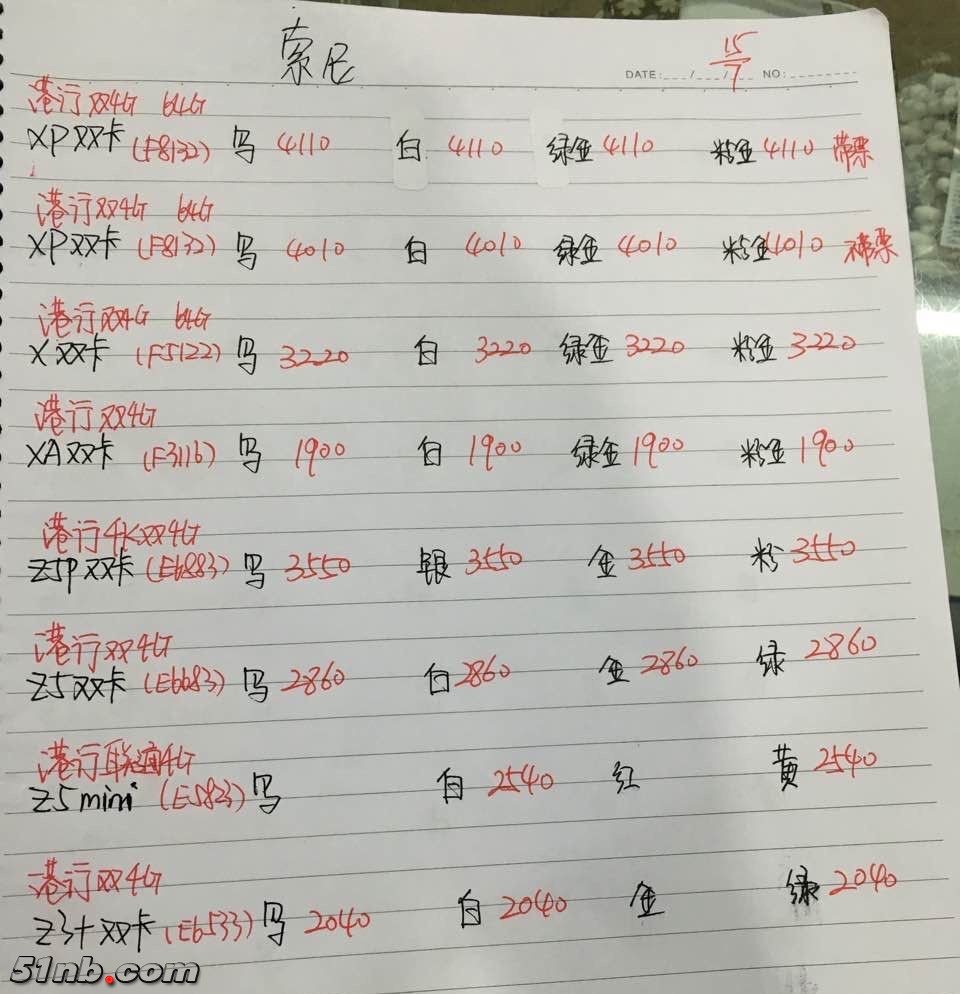 索尼
15/7
DATE: / / NO:
港行双4G 64G
XP双卡 (F8132) 鸟 4110 白 4110 绿金 4110 粉金 4110 带票
港行双4G 64G
XP双卡 (F8132) 鸟 4010 白 4010 绿金 4010 粉金 4010 不带票
港行双4G 64G
X双卡 (F5122) 鸟 3220 白 3220 绿金 3220 粉金 3220
港行双4G
XA双卡 (F3116) 鸟 1900 白 1900 绿金 1900 粉金 1900
港行4K双4G
Z5P双卡 (E6883) 鸟 3550 银 3550 金 3550 粉 3550
港行双4G
Z5双卡 (E6683) 鸟 2860 白 2860 金 2860 绿 2860
港行联通4G
Z5mini (E5823) 鸟 白 2540 红 黄 2540
港行双4G
Z3+双卡 (E6533) 鸟 2040 白 2040 金 绿 2040
51nb.com